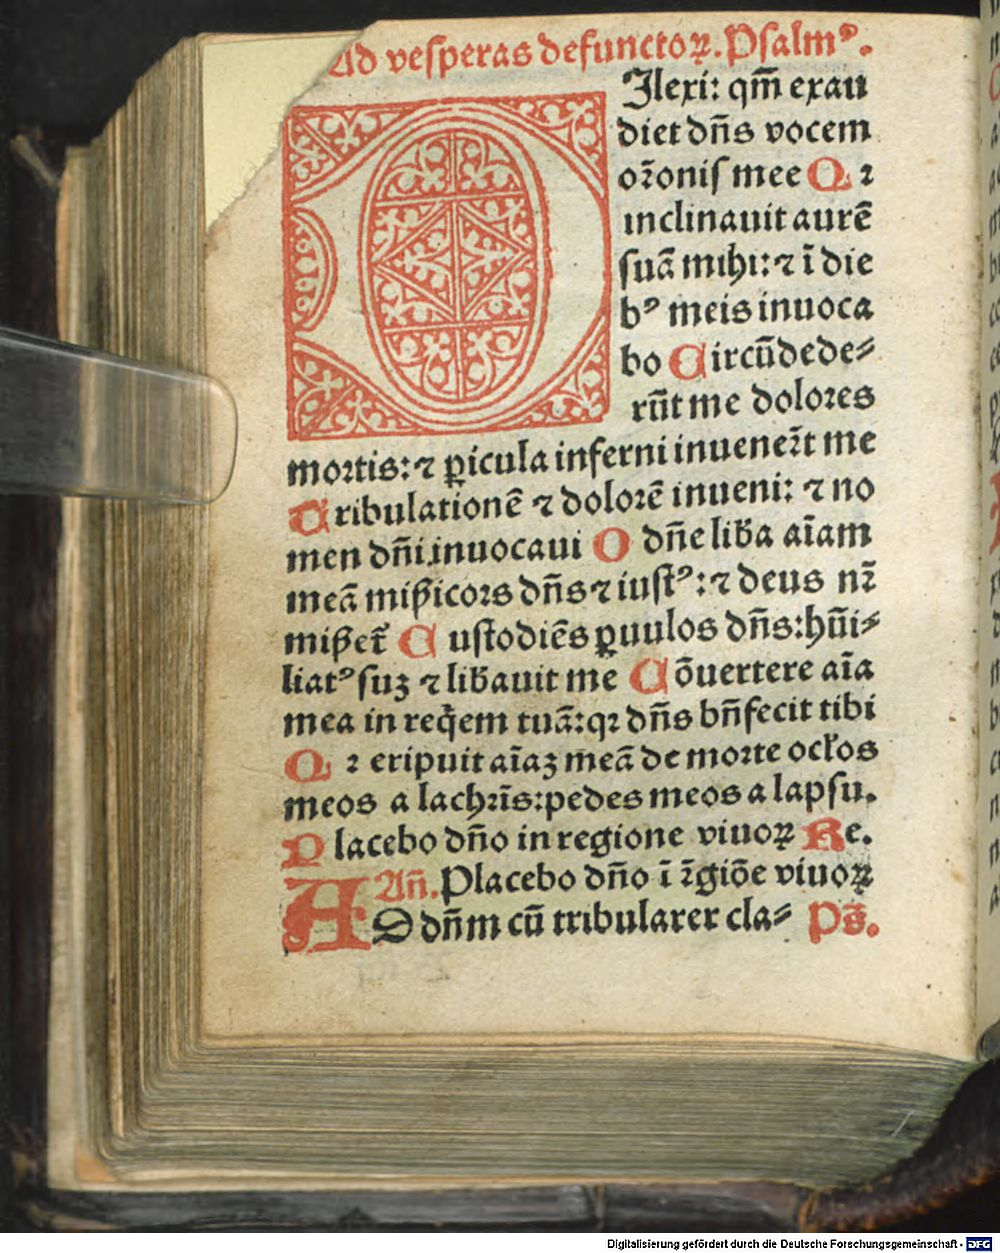 Ad vesperas defunctoꝝ. Psalmꝰ.
DIlexi: qm̄ exau
diet dn̄s vocem
or̄onis mee Qꝛ
inclinauit aurē
suā mihi: ⁊ ī die
bꝰ meis inuoca
bo Circūdede⸗
rūt me doloꝛes
moꝛtis: ⁊ ꝑicula inferni inuener̄t me
Tribulationē ⁊ doloꝛē inueni: ⁊ no
men dn̄i inuocaui O dn̄e liƀa aīam
meā miẜicoꝛs dn̄s ⁊ iustꝰ: ⁊ deus nr̄
miẜet᷑ Custodiēs ꝑuulos dn̄s: hūi⸗
liatꝰ suꝫ ⁊ liƀauit me Cōuertere aīa
mea in req̄em tuā: qꝛ dn̄s bn̄fecit tibi
Qꝛ eripuit aīaꝫ meā de moꝛte ocl̓os
meos a lachꝛīs: pedes meos a lapsu.
Placebo dn̄o in regione viuoꝝ Re.
An̄. Placebo dn̄o ī r̄giōe viuoꝝ
AD dn̄m cū tribularer cla⸗ Ps̄.
Digitalisierung gefördert durch die Deutsche Forschungsgemeinschaft - DFG